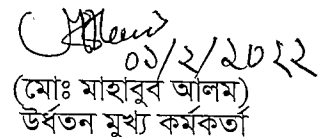 ০১/২/২০২২
(মোঃ মাহাবুর্ব আলম)
উর্ধতন মুখ্য কর্মকর্তা